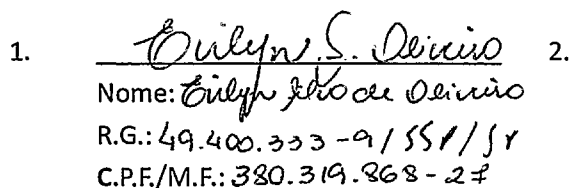 1. Evilyn S. Oliveira 2.
Nome: Evilyn de Oliveira
R.G.: 49.400.333-9/SSP/SP
C.P.F./M.F.: 380.319.868-27